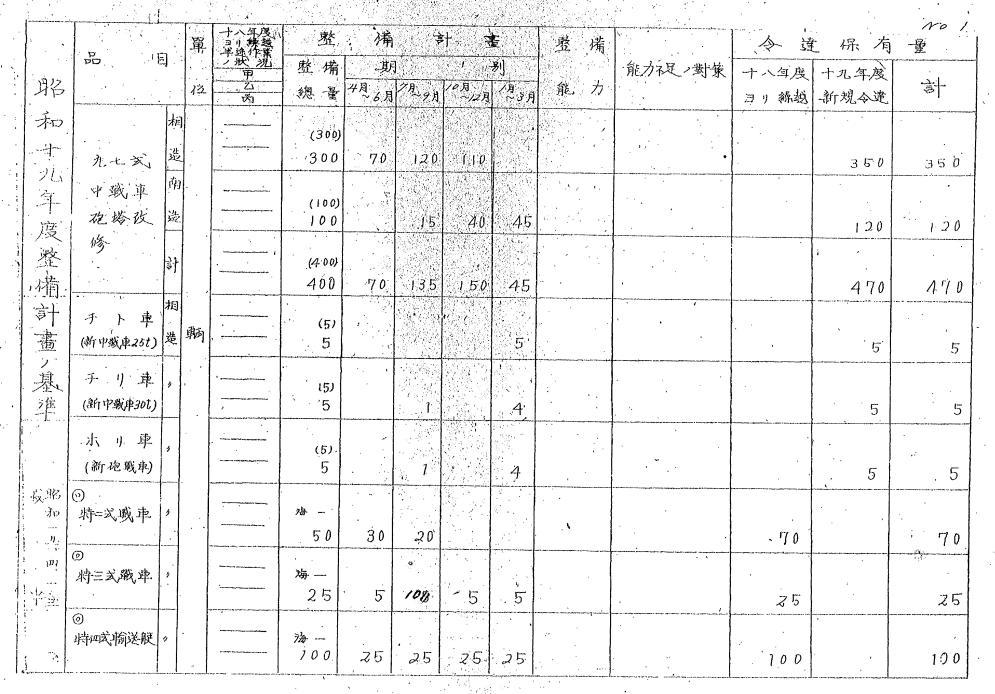 No 1.
昭和十九年度整備計畫ノ基準
昭和一九、四、一五
品目
單位
十八年度整備
甲
乙
丙
整備計畫
整備總量
期別
4月～6月
7月～9月
10月～12月
1月～3月
整備能力
能力不足ノ對策
令達保有量
十八年度ヨリ繰越
十九年度新規令達
計
輌
九七式中戦車砲塔改修
相造 (300) 300 70 120 110 350 350
南造 (100) 100 15 40 45 120 120
計 (400) 400 70 135 150 45 470 470
チト車 (新中戦車25t) 相造 (5) 5 5 5 5
チリ車 (新中戦車30t) 〃 (5) 5 1 4 5 5
ホリ車 (新砲戦車) 〃 (5) 5 1 4 5 5
特二式戦車 〃 海一 50 30 20 70 70
特三式戦車 〃 海一 25 5 10 5 5 25 25
特四式輸送艇 〃 海一 100 25 25 25 25 100 100